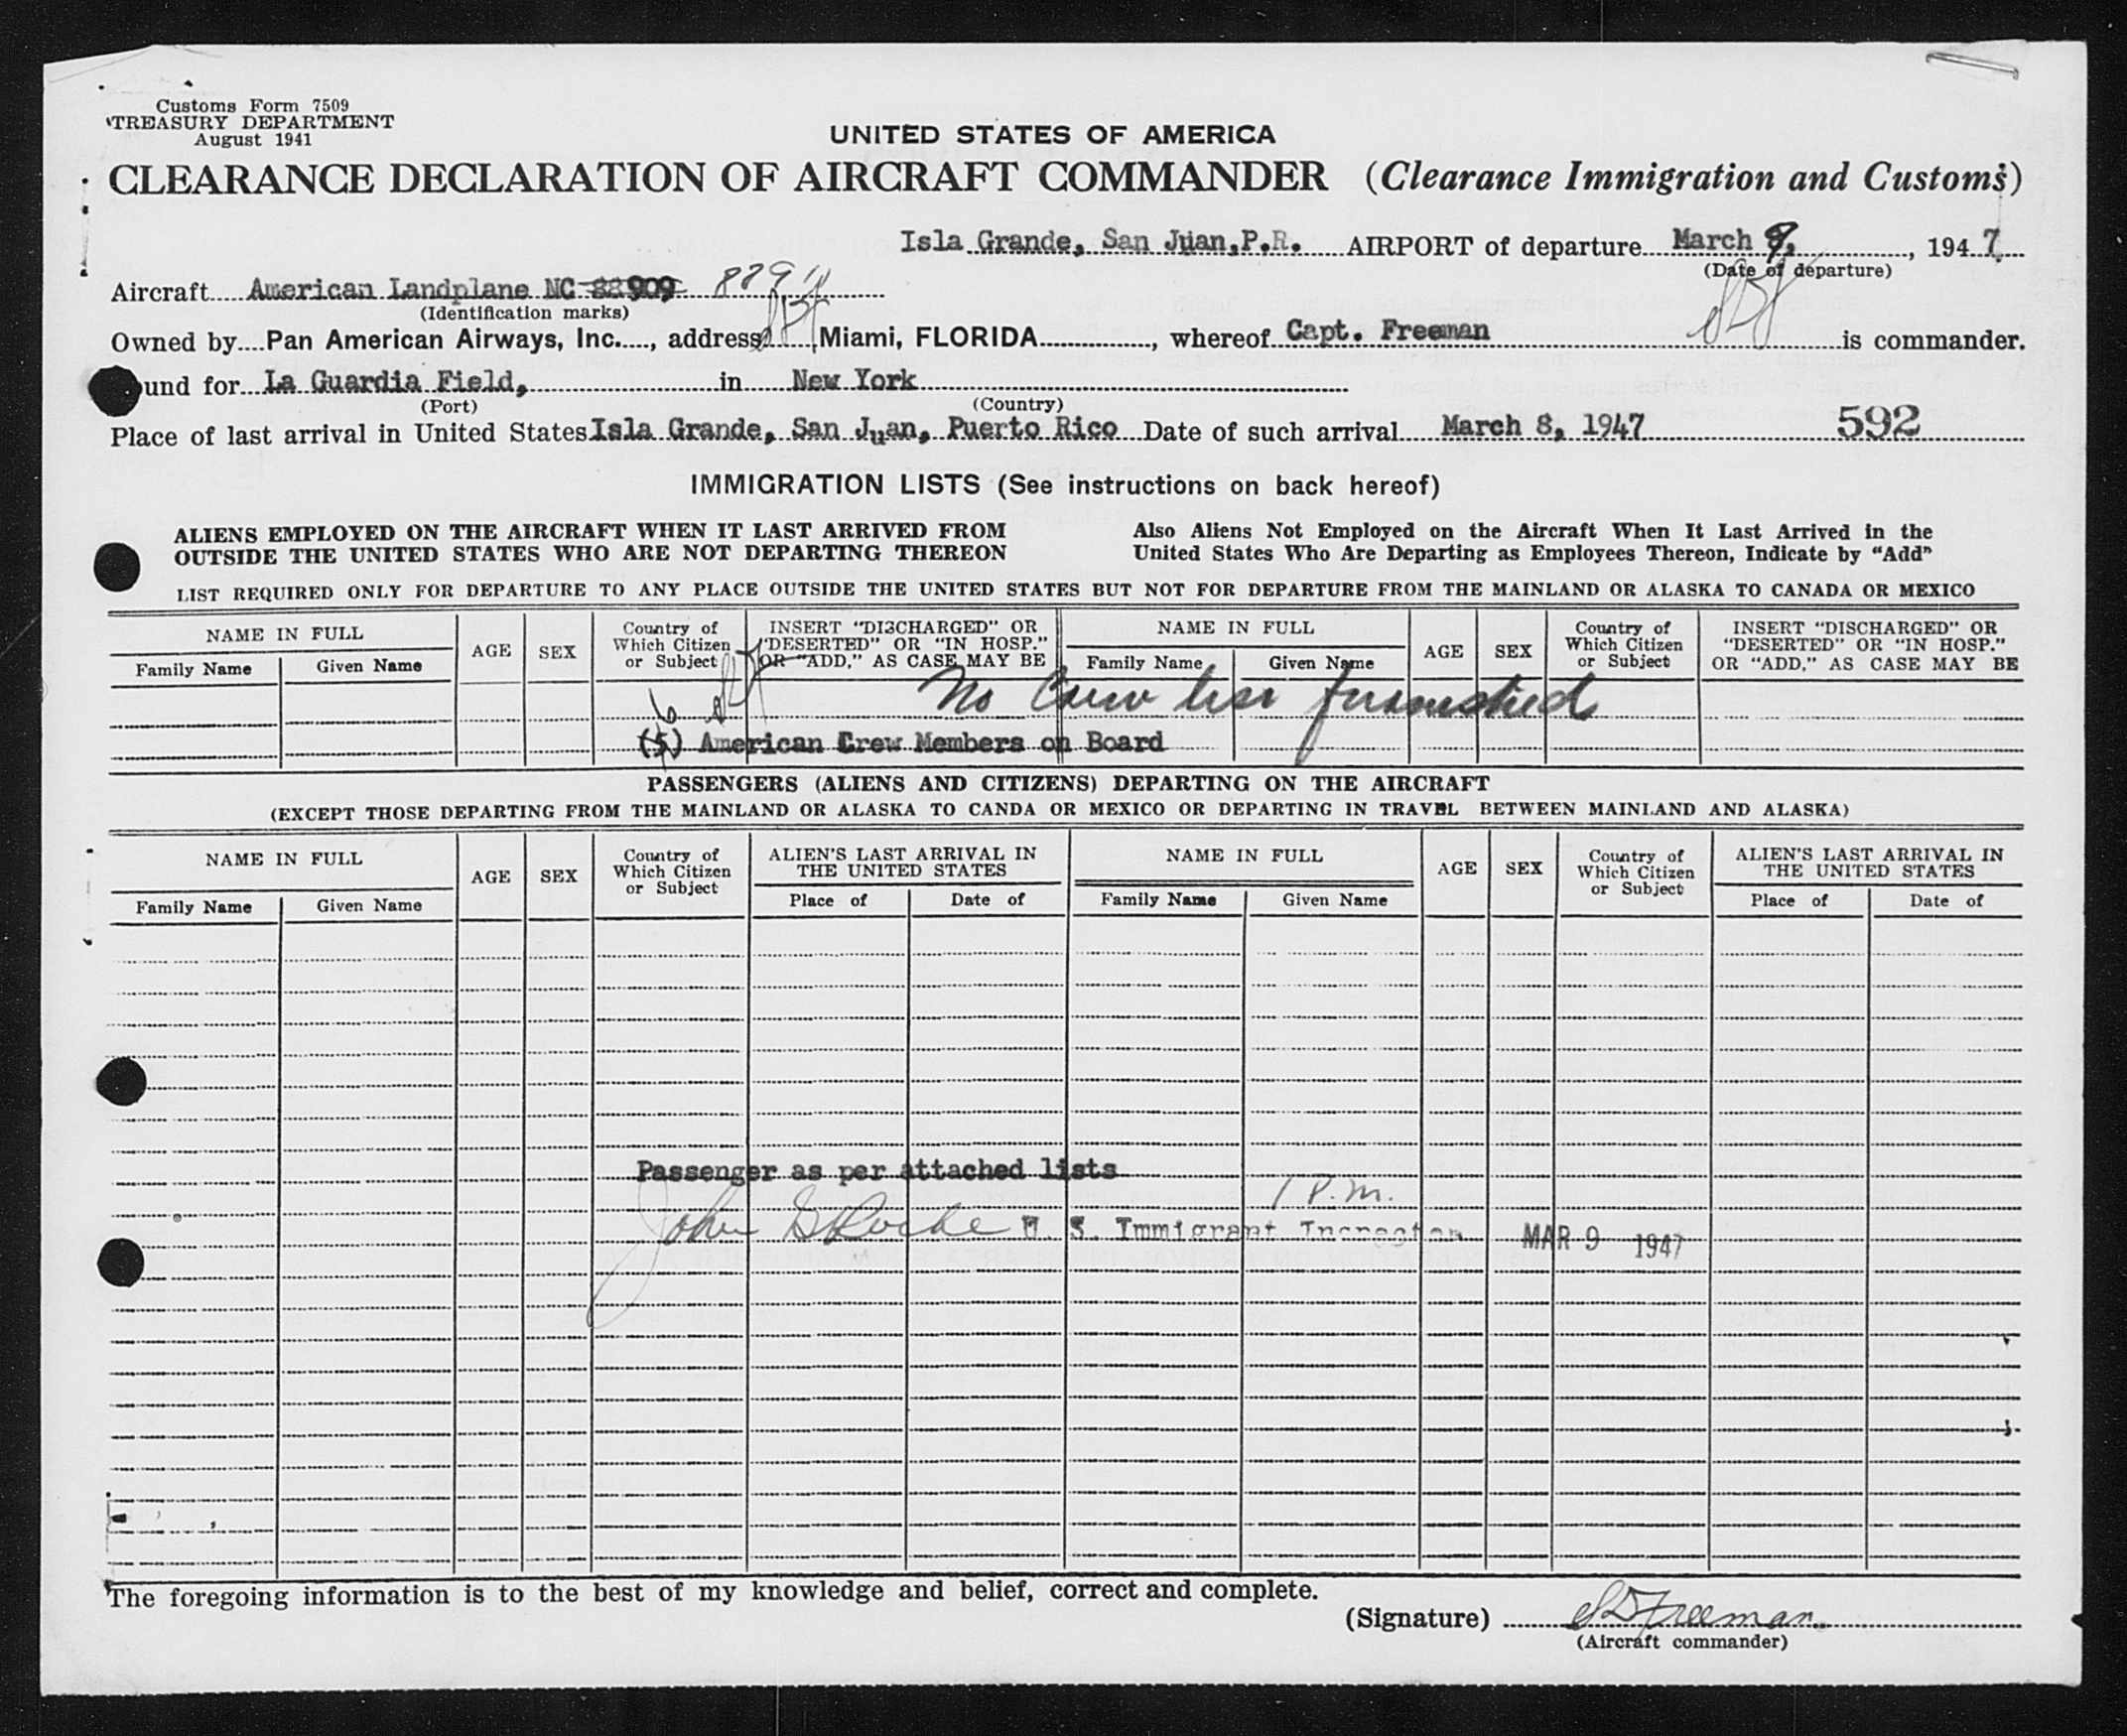 Customs Form 7509
TREASURY DEPARTMENT
August 1941
UNITED STATES OF AMERICA
CLEARANCE DECLARATION OF AIRCRAFT COMMANDER (Clearance Immigration and Customs)
Isla Grande, San Juan, P.R. AIRPORT of departure March 9, , 1947
(Date of departure)
Aircraft American Landplane NC 88909
(Identification marks)
Owned by Pan American Airways, Inc. , address Miami, FLORIDA , whereof Capt. Freeman is commander.
ound for La Guardia Field, in New York
(Port) (Country)
Place of last arrival in United States Isla Grande, San Juan, Puerto Rico Date of such arrival March 8, 1947 592
IMMIGRATION LISTS (See instructions on back hereof)
ALIENS EMPLOYED ON THE AIRCRAFT WHEN IT LAST ARRIVED FROM
OUTSIDE THE UNITED STATES WHO ARE NOT DEPARTING THEREON
Also Aliens Not Employed on the Aircraft When It Last Arrived in the
United States Who Are Departing as Employees Thereon, Indicate by "Add"
LIST REQUIRED ONLY FOR DEPARTURE TO ANY PLACE OUTSIDE THE UNITED STATES BUT NOT FOR DEPARTURE FROM THE MAINLAND OR ALASKA TO CANADA OR MEXICO
NAME IN FULL
Family Name Given Name
AGE
SEX
Country of
Which Citizen
or Subject
INSERT "DISCHARGED" OR
"DESERTED" OR "IN HOSP."
OR "ADD," AS CASE MAY BE
NAME IN FULL
Family Name Given Name
AGE
SEX
Country of
Which Citizen
or Subject
INSERT "DISCHARGED" OR
"DESERTED" OR "IN HOSP."
OR "ADD," AS CASE MAY BE
No Crew list furnished
6
(5) American Crew Members on Board
PASSENGERS (ALIENS AND CITIZENS) DEPARTING ON THE AIRCRAFT
(EXCEPT THOSE DEPARTING FROM THE MAINLAND OR ALASKA TO CANDA OR MEXICO OR DEPARTING IN TRAVEL BETWEEN MAINLAND AND ALASKA)
NAME IN FULL
Family Name Given Name
AGE
SEX
Country of
Which Citizen
or Subject
ALIEN'S LAST ARRIVAL IN
THE UNITED STATES
Place of Date of
NAME IN FULL
Family Name Given Name
AGE
SEX
Country of
Which Citizen
or Subject
ALIEN'S LAST ARRIVAL IN
THE UNITED STATES
Place of Date of
Passenger as per attached lists
1 P.M.
John U. S. Immigrant Inspector MAR 9 1947
The foregoing information is to the best of my knowledge and belief, correct and complete.
(Signature) Freeman
(Aircraft commander)